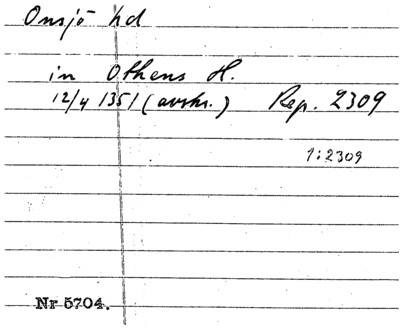 Onsjö hd
in Othens H.
12/4 1351 (avskr.) Rep. 2309
1:2309
Nr 5704.